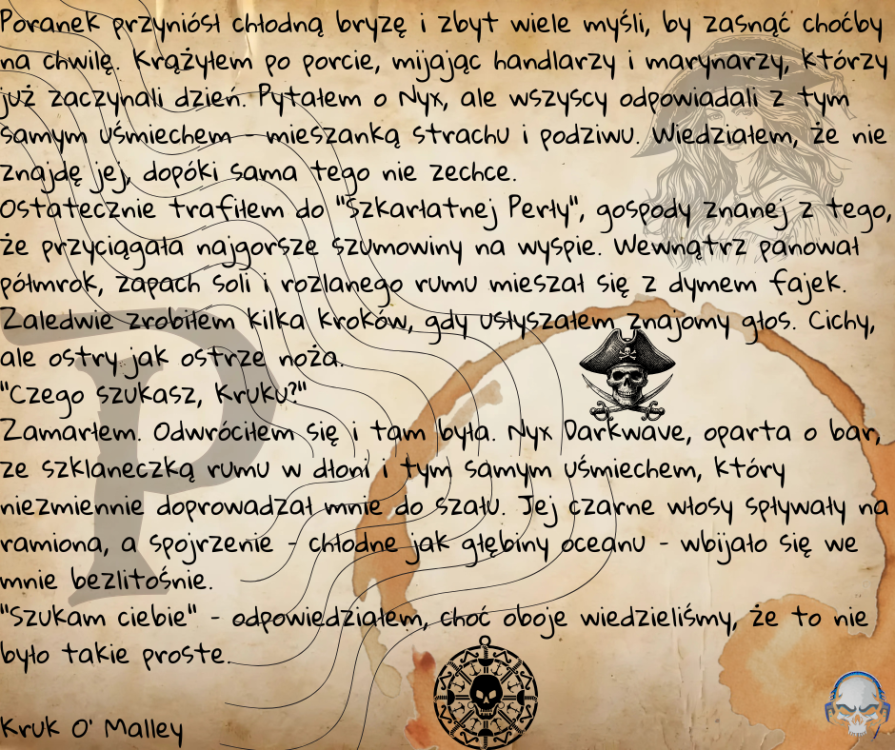 Poranek przyniósł chłodną bryzę i zbyt wiele myśli, by zasnąć choćby
na chwilę. Krążyłem po porcie, mijając handlarzy i marynarzy, którzy
już zaczynali dzień. Pytałem o Nyx, ale wszyscy odpowiadali z tym
samym uśmiechem - mieszanką strachu i podziwu. Wiedziałem, że nie
znajdę jej, dopóki sama tego nie zechce.
Ostatecznie trafiłem do "Szkarłatnej Perły", gospody znanej z tego,
że przyciągała najgorsze szumowiny na wyspie. Wewnątrz panował
półmrok, zapach soli i rozlanego rumu mieszał się z dymem fajek.
Zaledwie zrobiłem kilka kroków, gdy usłyszałem znajomy głos. Cichy,
ale ostry jak ostrze noża.
"Czego szukasz, Kruku?"
Zamarłem. Odwróciłem się i tam była. Nyx Darkwave, oparta o bar,
ze szklaneczką rumu w dłoni i tym samym uśmiechem, który
niezmiennie doprowadzał mnie do szału. Jej czarne włosy spływały na
ramiona, a spojrzenie - chłodne jak głębiny oceanu - wbijało się we
mnie bezlitośnie.
"Szukam ciebie" - odpowiedziałem, choć oboje wiedzieliśmy, że to nie
było takie proste.
Kruk O' Malley
P